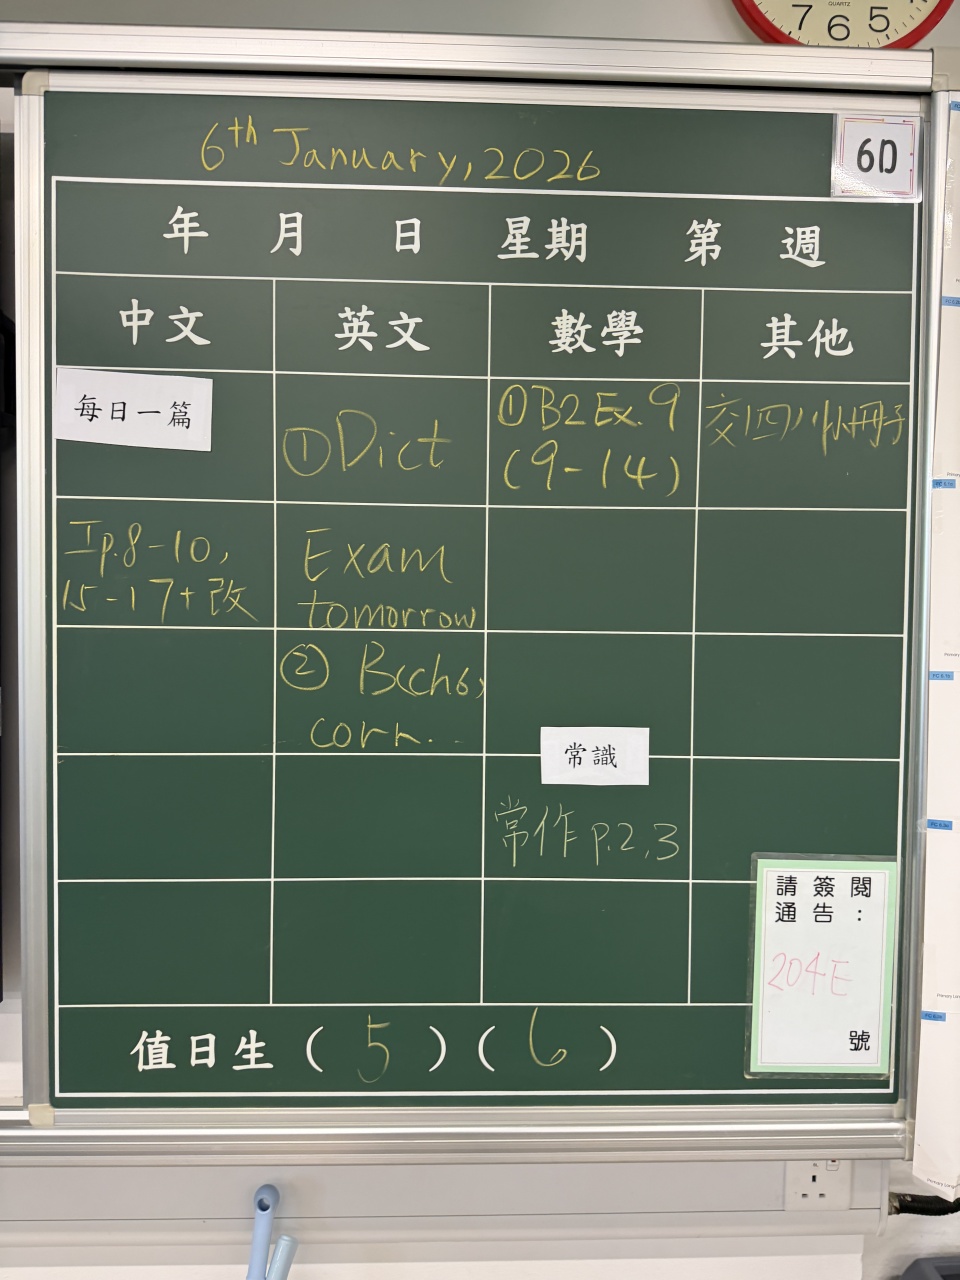 7 6 5
QUARTZ
6th January, 2026
6D
年 月 日 星期 第 週
中文 英文 數學 其他
每日一篇
Ip.8-10,
15-17+改
①Dict
Exam
tomorrow
② B(ch6)
corr.
①B2Ex.9
(9-14)
常識
常作 p.2,3
交四川小冊子
請簽閱
通告:
204E
號
值日生(5)(6)